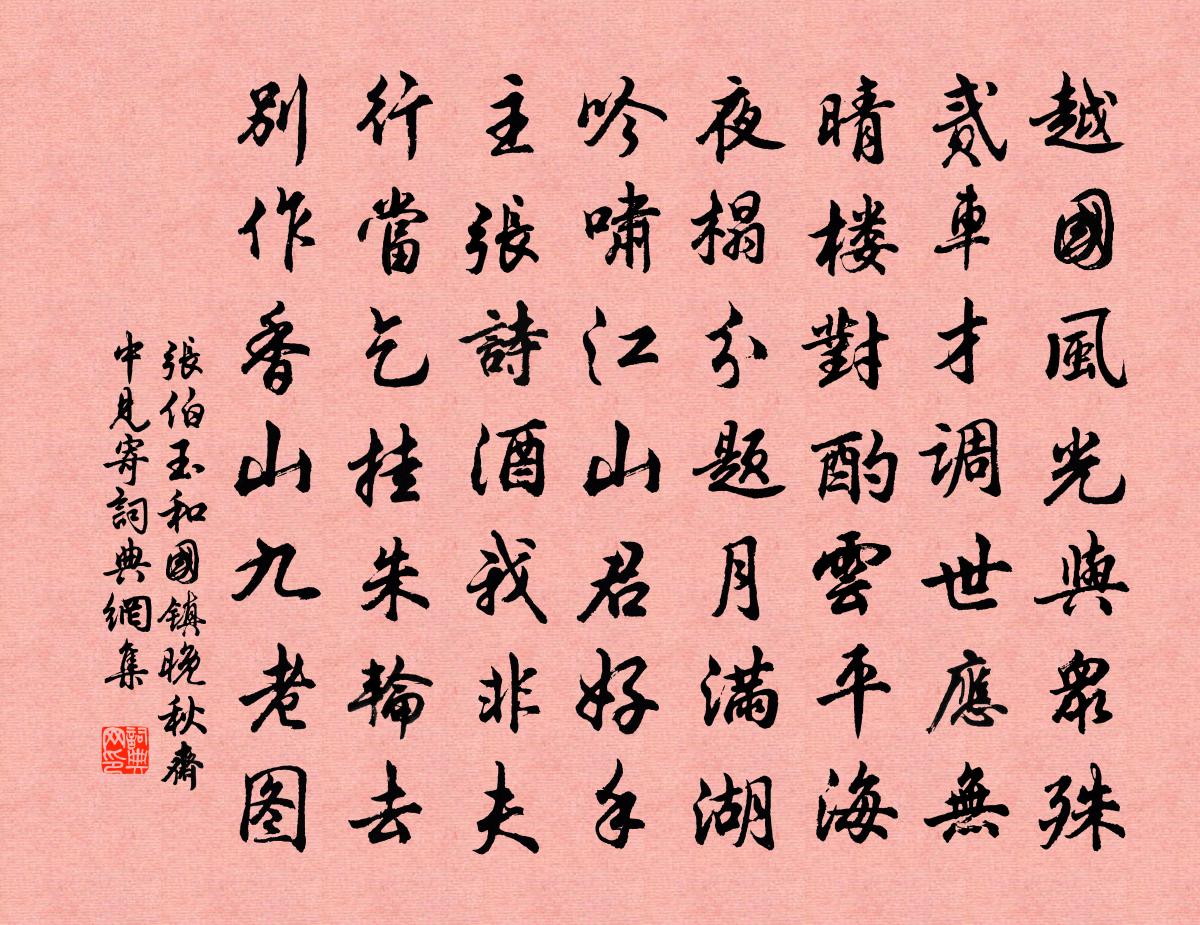 越國風光與衆殊
貳車才调世應無
晴楼對酌雲平海
夜榻分题月滿湖
吟嘯江山君好手
主張詩酒我非夫
行當乞挂朱輪去
别作香山九老图
張伯玉和國鎮晚秋齋
中見寄詞典網集
詞典网印